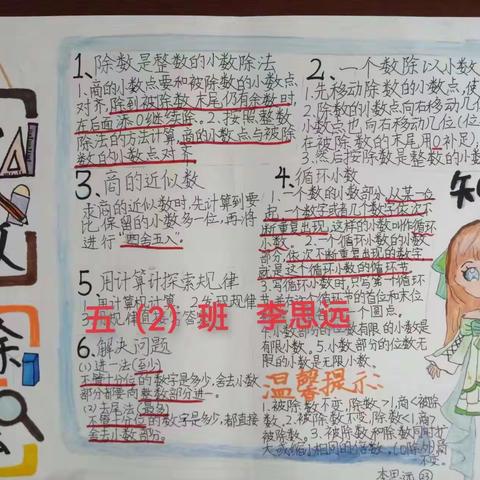 1、除数是整数的小数除法
1.商的小数点要和被除数的小数点
对齐,除到被除数末尾仍有余数时,
在后面添0继续除。2.按照整数
除法的方法计算,商的小数点与被除
数的小数点对齐
2、一个数除以小数
1.先移动除数的小数点,使
2.除数的小数点向右移动几位
小数点也向右移动几位(位
在被除数的末尾用0补足)
3.然后按除数是整数的小数
3、商的近似数
求商的近似数时,先计算到要
比保留的小数多一位,再将
进行"四舍五入"
4、循环小数
1.一个数的小数部分,从某一位
起,一个数字或者几个数字依次不
断重复出现,这样的小数叫作循环
小数。2.一个循环小数的小数
部分,依次不断重复出现的数字,
就是这个循环小数的循环节
3.写循环小数时,只写第一个循环
一个圆点。
小数部分的位数有限的小数是
有限小数。5.小数部分的位数无
限的小数是无限小数。
5.用计算计探索规律
五(2)班 李思远
6.解决问题
(1)进一法(至少)
不管十分位的数字是多少,舍去小数
部分都要向整数部分进一
(2)去尾法(最多)
不管十分位的数字是多少,都直接
舍去小数部。
温馨提示:
1.被除数不变,除数>1,商<被除
数,2.被除数不变,除数<1,商>
被除数。3.被除数和除数同时扩
大或缩小相同的倍数,(0除外)商
不变。
李思远(23)
知
除